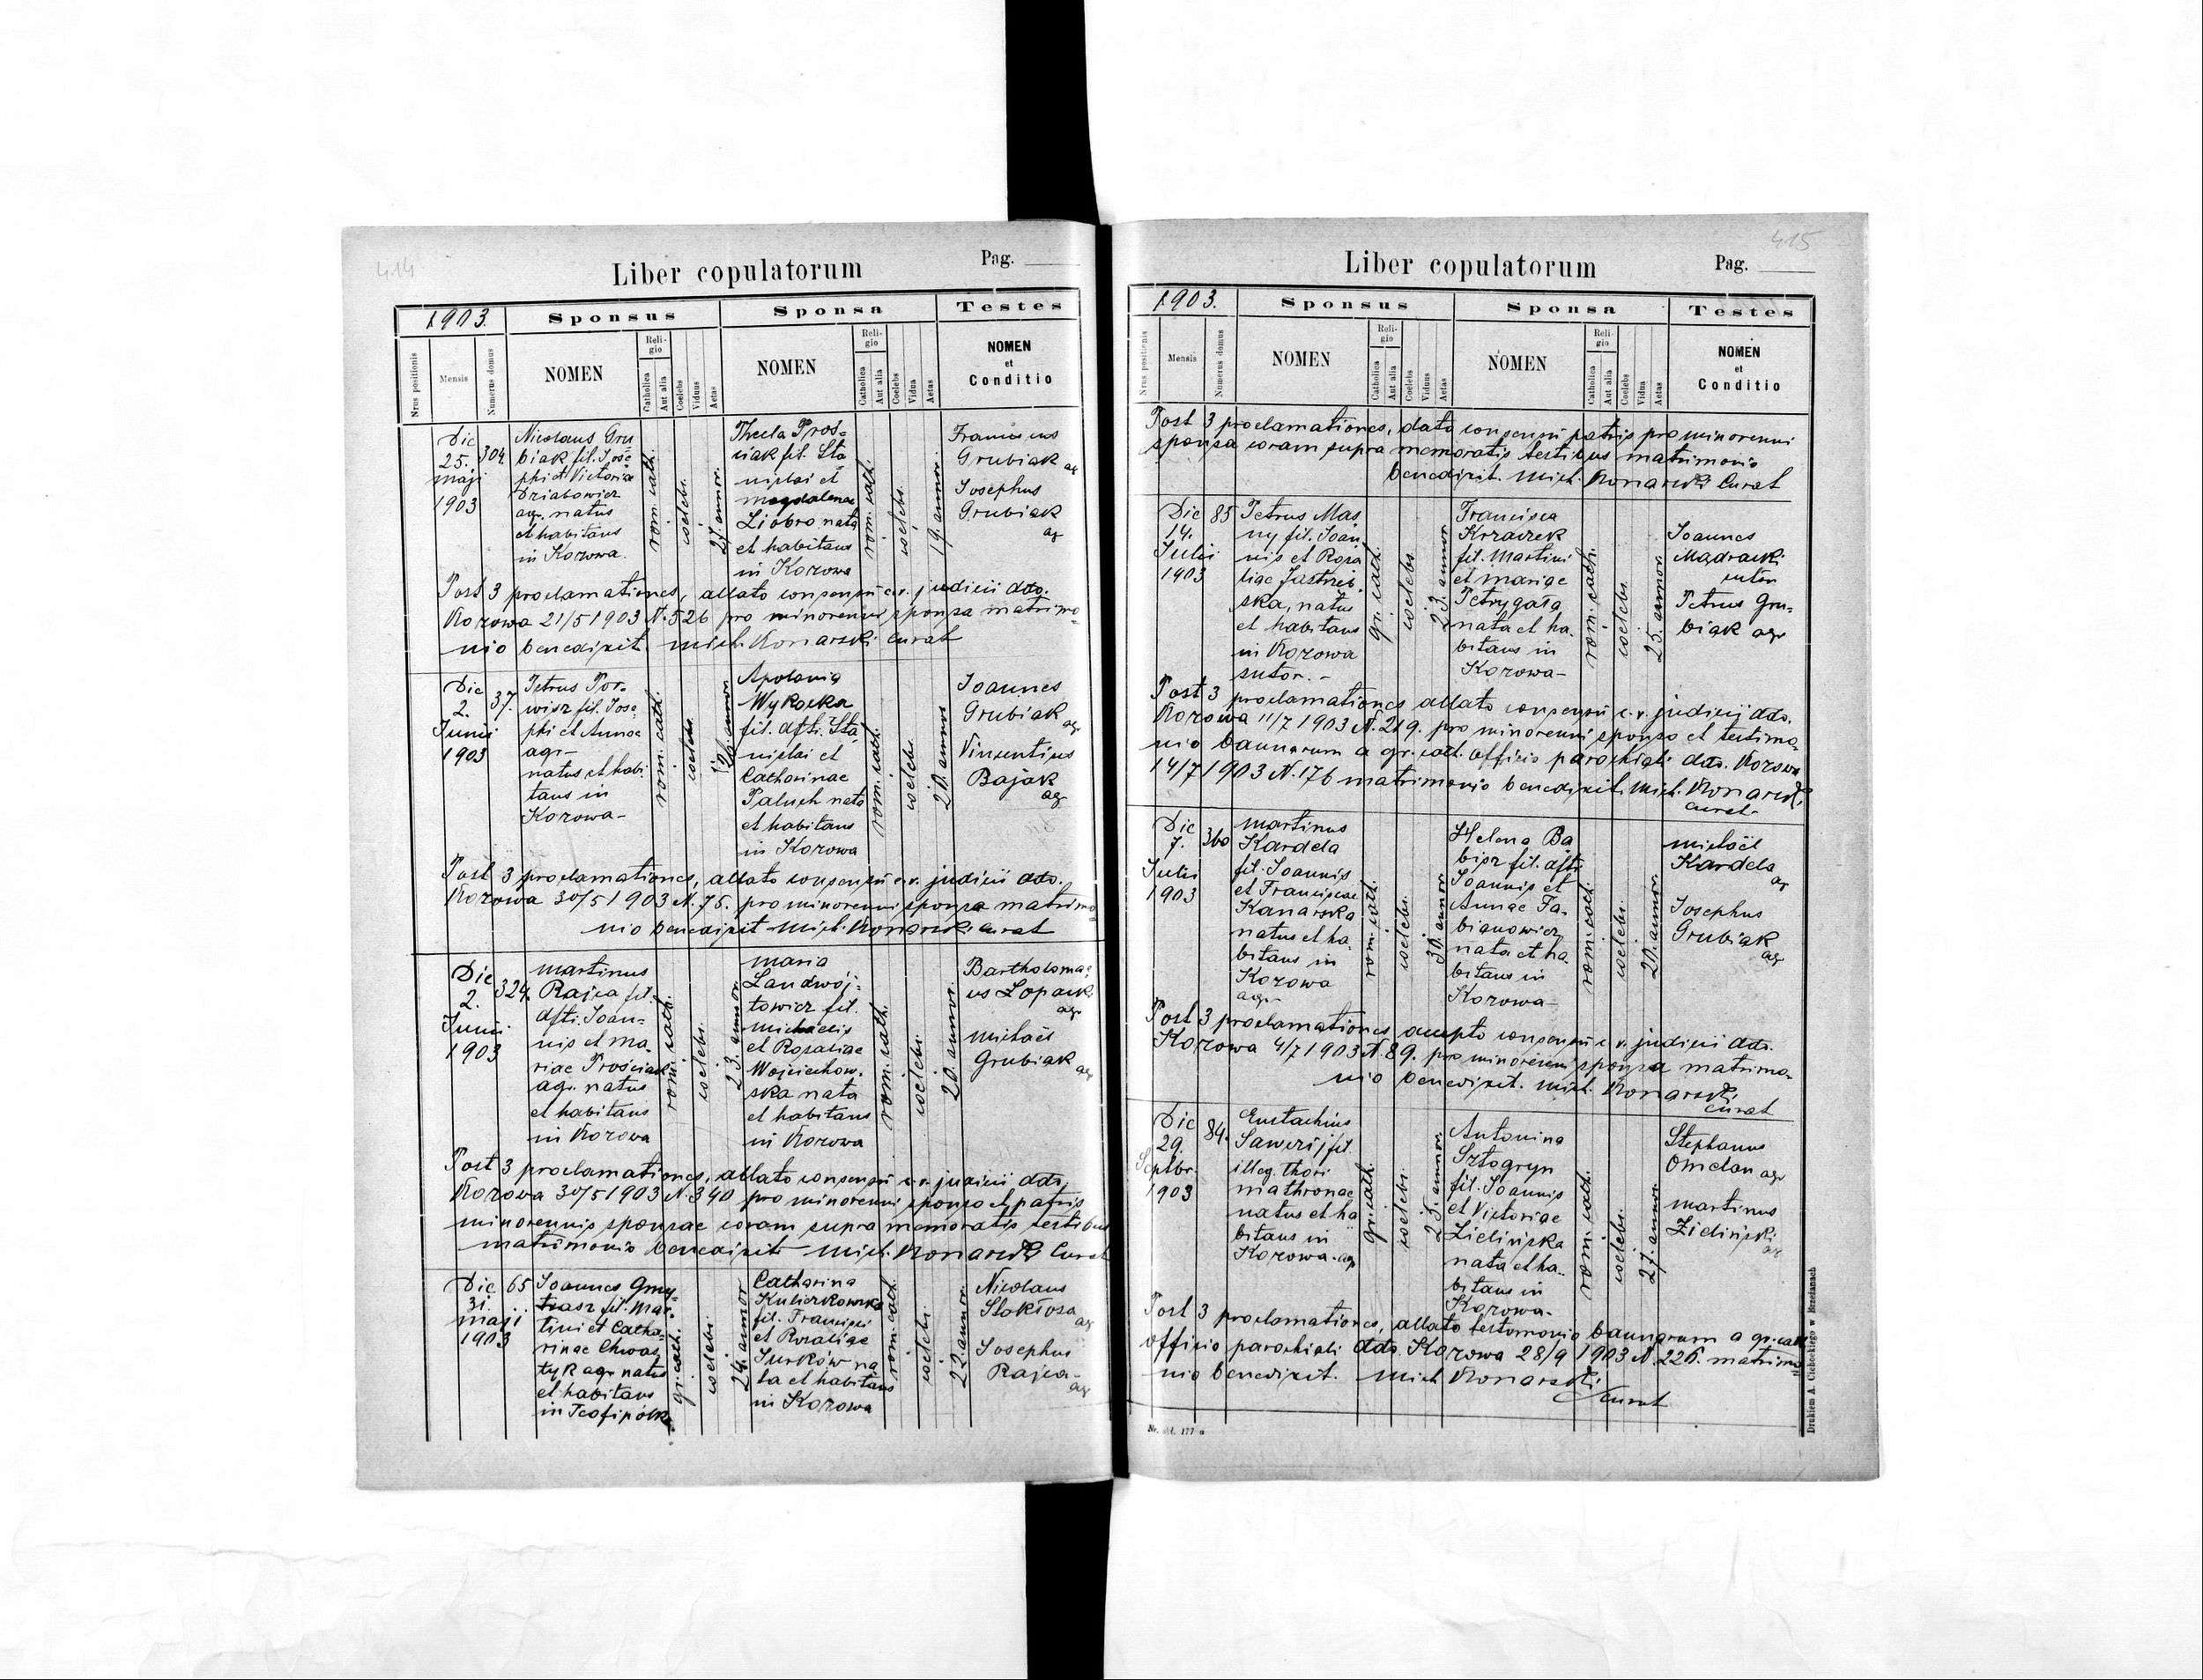 414
Liber copulatorum
Pag.
1903.
Sponsus
Sponsa
Testes
Nrus positionis
Mensis
Numerus domus
NOMEN
Religio
Catholica
Aut alia
Coelebs
Viduus
Aetas
NOMEN
Religio
Catholica
Aut alia
Coelebs
Vidua
Aetas
NOMEN
et
Conditio
Die
25.
maji
1903
304
Nicolaus Gru
biak fil. Jose
phi et Victoriae
Dziabowicz
agr. natus
et habitans
in Kozowa.
rom. cath.
coelebs.
27. annor.
Thecla Pros=
ciak fil. Sta
nislai et
magdalenae
Ziobro nata
et habitans
in Kozowa
rom. cath.
coelebs.
19. annor.
Franciscus
Grubiak ag
Josephus
Grubiak
ag
Post 3 proclamationes, allato consensu c.r. judicii ddo.
Kozowa 21/5 1903 N. 526 pro minorenni sponsa matrimo=
nio benedixit mich. Konarski curat
Die
2.
Junii
1903
37.
Petrus Por=
wisz fil. Jose
phi et Annae
agr.-
natus et habi
tans in
Kozowa-
rom. cath.
coelebs.
26. annor.
Apolonia
Wykocka
fil. dfti. Sta
nislai et
Catharinae
Paluch nata
et habitans
in Kozowa
rom. cath.
coelebs.
20. annor
Joannes
Grubiak ag
Vincentius
Bajak
ag
Post 3 proclamationes, allato consensu c.r. judicii ddo.
Kozowa 30/5 1903 N. 75. pro minorenni sponsa matrimo=
nio benedixit mich. Konarski curat
Die
2.
Junii
1903
324.
martinus
Rajca fil.
dfti. Joan=
nis et Ma
riae Prosciak
agr. natus
et habitans
in Kozowa
rom. cath.
coelebs.
23. annor.
maria
Landwój-
towicz fil.
michaelis
et Rosaliae
Wojciechow.
ska nata
et habitans
in Kozowa
rom. cath.
coelebs.
20. annor.
Bartholomae
us Lopacki
ag
michaël
Grubiak ag
Post 3 proclamationes, allato consensu c.r. judicii ddo.
Kozowa 30/5 1903 N. 340 pro minorenni sponso et patris
minorennis sponsae coram supra memoratis testibus
matrimonio benedixit mich. Konarski Curat
Die
31.
maji
1903
65
Joannes Gmy=
trasz fil. Mar=
tini et Catha=
rinae Chwas
tyk agr. natus
et habitans
in Teofipólka
gr. cath.
coelebs.
24. annor
Catharina
Kuliczkowska
fil. Francisci
et Rozaliae
Surków na
ta et habitans
in Kozowa
rom. cath.
coelebs.
22. annor.
Nicolaus
Stokłosa
ag
Josephus
Rajca-
ag
415
Liber copulatorum
Pag.
1903.
Sponsus
Sponsa
Testes
Nrus positionis
Mensis
Numerus domus
NOMEN
Religio
Catholica
Aut alia
Coelebs
Viduus
Aetas
NOMEN
Religio
Catholica
Aut alia
Coelebs
Vidua
Aetas
NOMEN
et
Conditio
Post 3 proclamationes, dato consensu patris pro minorenni
sponsa coram supra memoratis testibus matrimonio
benedixit. Mich. Konarski Curat
Die
14.
Julii
1903
85
Petrus Mas
ny fil. Joan
nis et Rosa
liae Jastrzeb
ska, natus
et habitans
in Kozowa
sutor.-
gr. cath.
coelebs.
23. annor
Francisca
Krzaczek
fil. Martini
et mariae
Petrygała
nata et ha.
bitans in
Kozowa-
rom. cath.
coelebs.
25. annor.
Joannes
Madracki
sutor
Petrus Gru=
biak agr
Post 3 proclamationes allato consensu c.r. judicii ddo.
Kozowa 11/7 1903 N. 219. pro minorenni sponso et testimo=
nio bannorum a gr. cath. officio parochiali ddo. Kozowa
14/7 1903 N. 176 matrimonio benedixit. mich. Konarski
curat-
Die
7.
Julii
1903
360
martinus
Kardela
fil. Joannis
et Franciscae
Kanarska
natus et ha.
bitans in
Kozowa
agr.-
rom. cath.
coelebs.
30. annor
Helena Ba
bisz fil. dfti
Joannis et
Annae Fa-
bianowicz
nata et ha.
bitans in
Kozowa-
rom. cath.
coelebs.
20. annor.
michaël
Kardela
ag
Josephus
Grubiak
ag
Post 3 proclamationes accepto consensu c.r. judicii ddo.
Kozowa 4/7 1903 N. 89. pro minorenni sponsa matrimo=
nio benedixit. mich. Konarski
curat
Die
29.
Septbr.
1903
84.
Eustachius
Saweryj fil.
illeg. thori
mathronae
natus et ha
bitans in
Kozowa. agr
gr. cath.
coelebs.
25. annor.
Antonina
Sztogryn
fil. Joannis
et Victoriae
Zielinska
nata et ha.
bitans in
Kozowa-
rom. cath.
coelebs.
27. annor.
Stephanus
Omelan agr
martinus
Zielinski
ag
Post 3 proclamationes, allato testomonio bannorum a gr. cath
officio parochiali ddo. Kozowa 28/9 1903 N. 226. matrimo=
nio benedixit. mich Konarski
Curat
Drukiem A. Cichockiego w Brzeżanach